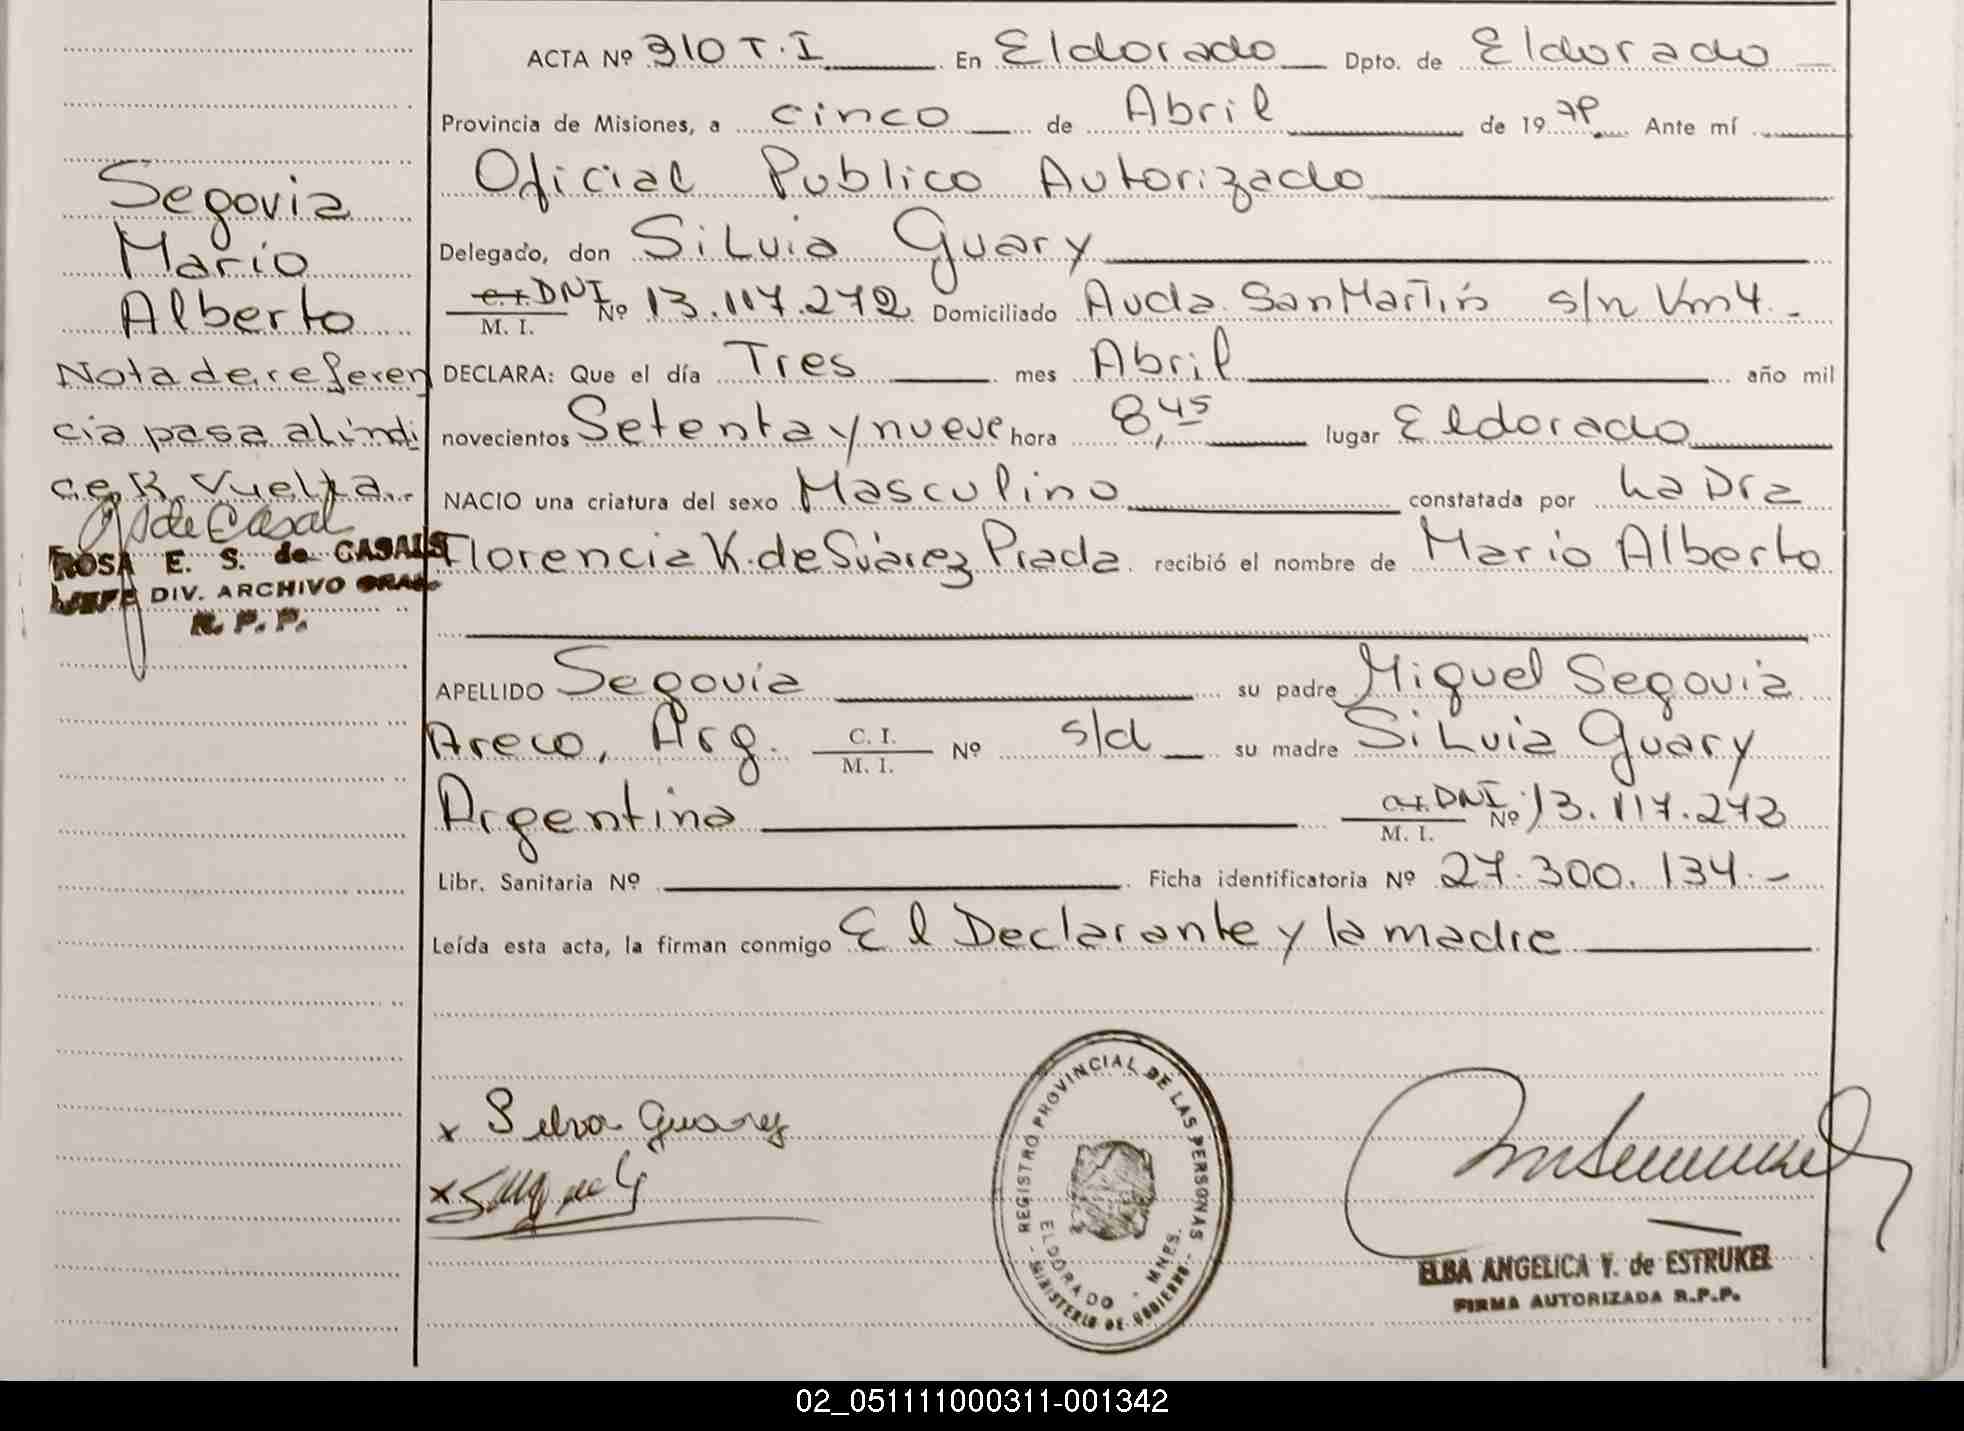 ACTA Nº 310 T. I En Eldorado Dpto. de Eldorado
Provincia de Misiones, a cinco de Abril de 1979 Ante mí
Oficial Publico Autorizado
Delegado, don SiLvia Guary
C.I. DNI M. I. Nº 13.117.272 Domiciliado Avda. San Martin s/n Km 4. -
DECLARA: Que el día Tres mes Abril año mil
novecientos Setenta y nueve hora 8,45 lugar Eldorado
NACIO una criatura del sexo Masculino constatada por La Dra
Florencia K. de Suárez Prada recibió el nombre de Mario Alberto
APELLIDO Segovia su padre Miguel Segovia
Areco, Arg. C. I. M. I. Nº s/d su madre SiLvia Guary
Argentina C.I. DNI M. I. Nº 13.117.272
Libr. Sanitaria Nº Ficha identificatoria Nº 27.300.134.-
Leída esta acta, la firman conmigo El Declarante y la madre
Segovia
Mario
Alberto
Nota de referen
cia pasa al indi
ce R. Vuelta.
de Casal
ROSA E. S. de CASALS
JEFE DIV. ARCHIVO GRAL.
R. P. P.
x Silva Guary
x
- REGISTRO PROVINCIAL DE LAS PERSONAS -
MINISTERIO DE GOBIERNO
ELDORADO - MNES.
ELBA ANGELICA Y. de ESTRUKEL
FIRMA AUTORIZADA R.P.P.
02_051111000311-001342